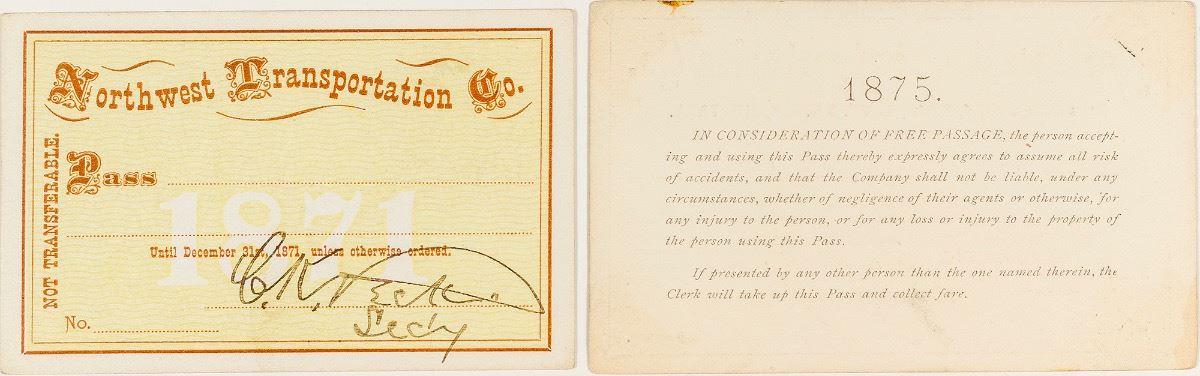 Northwest Transportation Co.
NOT TRANSFERABLE.
Pass
1871
Until December 31st, 1871, unless otherwise ordered.
C. K. Peck
Secy
No.
1875.
IN CONSIDERATION OF FREE PASSAGE, the person accept-
ing and using this Pass thereby expressly agrees to assume all risk
of accidents, and that the Company shall not be liable, under any
circumstances, whether of negligence of their agents or otherwise, for
any injury to the person, or for any loss or injury to the property of
the person using this Pass.
If presented by any other person than the one named therein, the
Clerk will take up this Pass and collect fare.